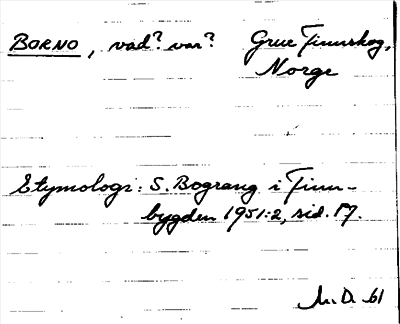 BORNO, vad? var? Grue Finnskog,
Norge
Etymologi: S. Bograng i Finn-
bygden 1951:2, sid. 17.
M.D. 61